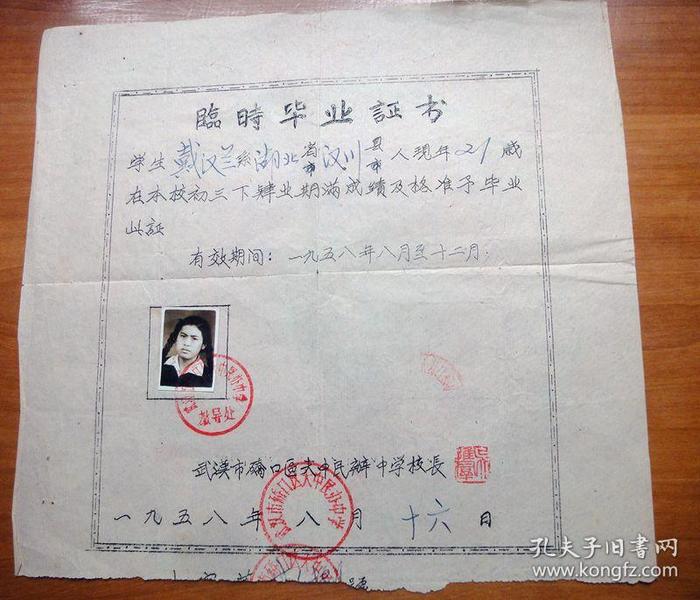 臨時毕业証书
学生戴汉兰系湖北省市汉川县市人现年21歳
在本校初三下肄业期滿成績及格准予毕业
此証
有效期间：一九五八年八月至十二月
武漢市礄口区大中民辦中学校長
一九五八年八月十六日
武汉市硚口区大中民办中学
孔夫子旧书网
www.kongfz.com